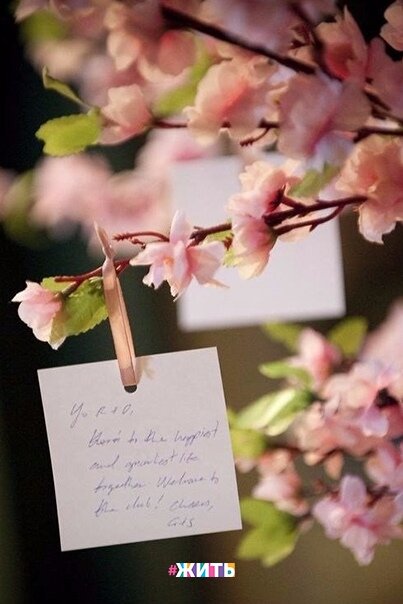 Yo R + D,
Here's to the happiest
and greatest life
together. Welcome to
the club! Cheers,
G+S
#ЖИТЬ